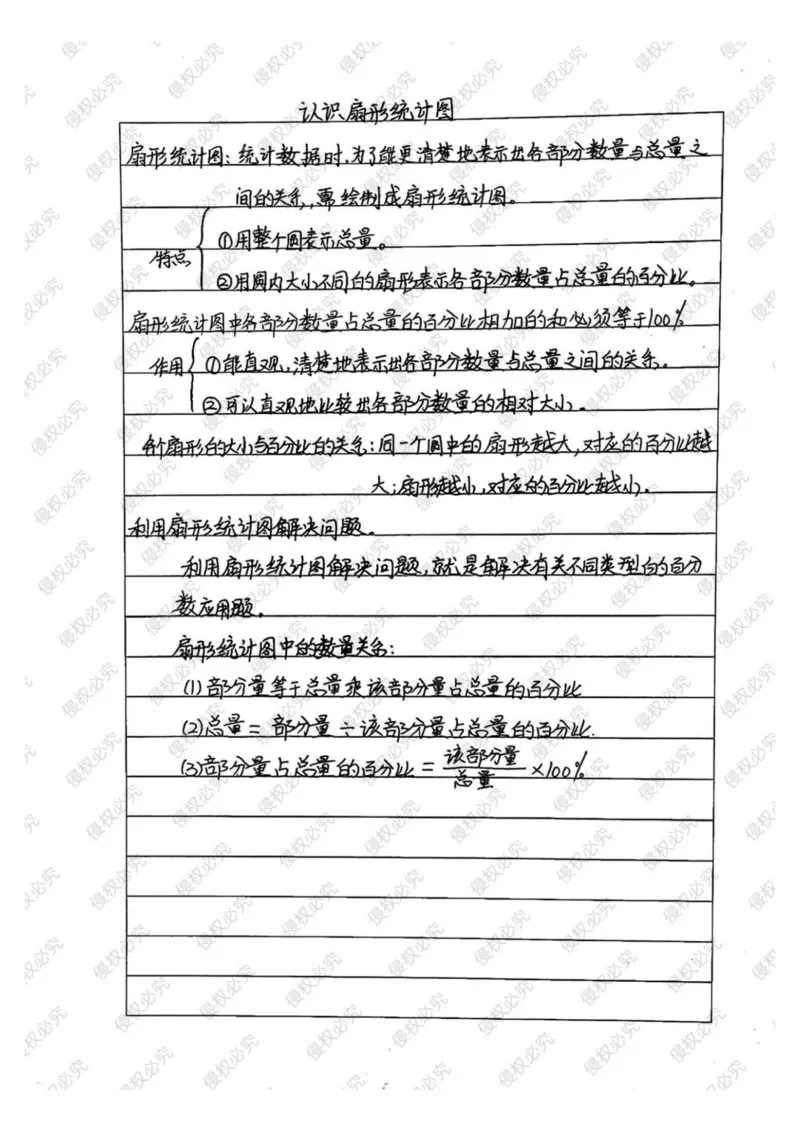 认识扇形统计图
扇形统计图:统计数据时,为了能更清楚地表示出各部分数量与总量之
间的关系,需绘制成扇形统计图。
特点
①用整个圆表示总量。
②用圆内大小不同的扇形表示各部分数量占总量的百分比。
扇形统计图中各部分数量占总量的百分比相加的和必须等于100%
作用
①能直观,清楚地表示出各部分数量与总量之间的关系。
②可以直观地比较出各部分数量的相对大小。
各个扇形的大小与百分比的关系:同一个圆中的扇形越大,对应的百分比越
大;扇形越小,对应的百分比越小。
利用扇形统计图解决问题。
利用扇形统计图解决问题,就是解决有关不同类型的百分
数应用题。
扇形统计图中的数量关系:
(1)部分量等于总量乘该部分量占总量的百分比
(2)总量=部分量÷该部分量占总量的百分比.
(3)部分量占总量的百分比=该部分量/总量×100%
侵权必究